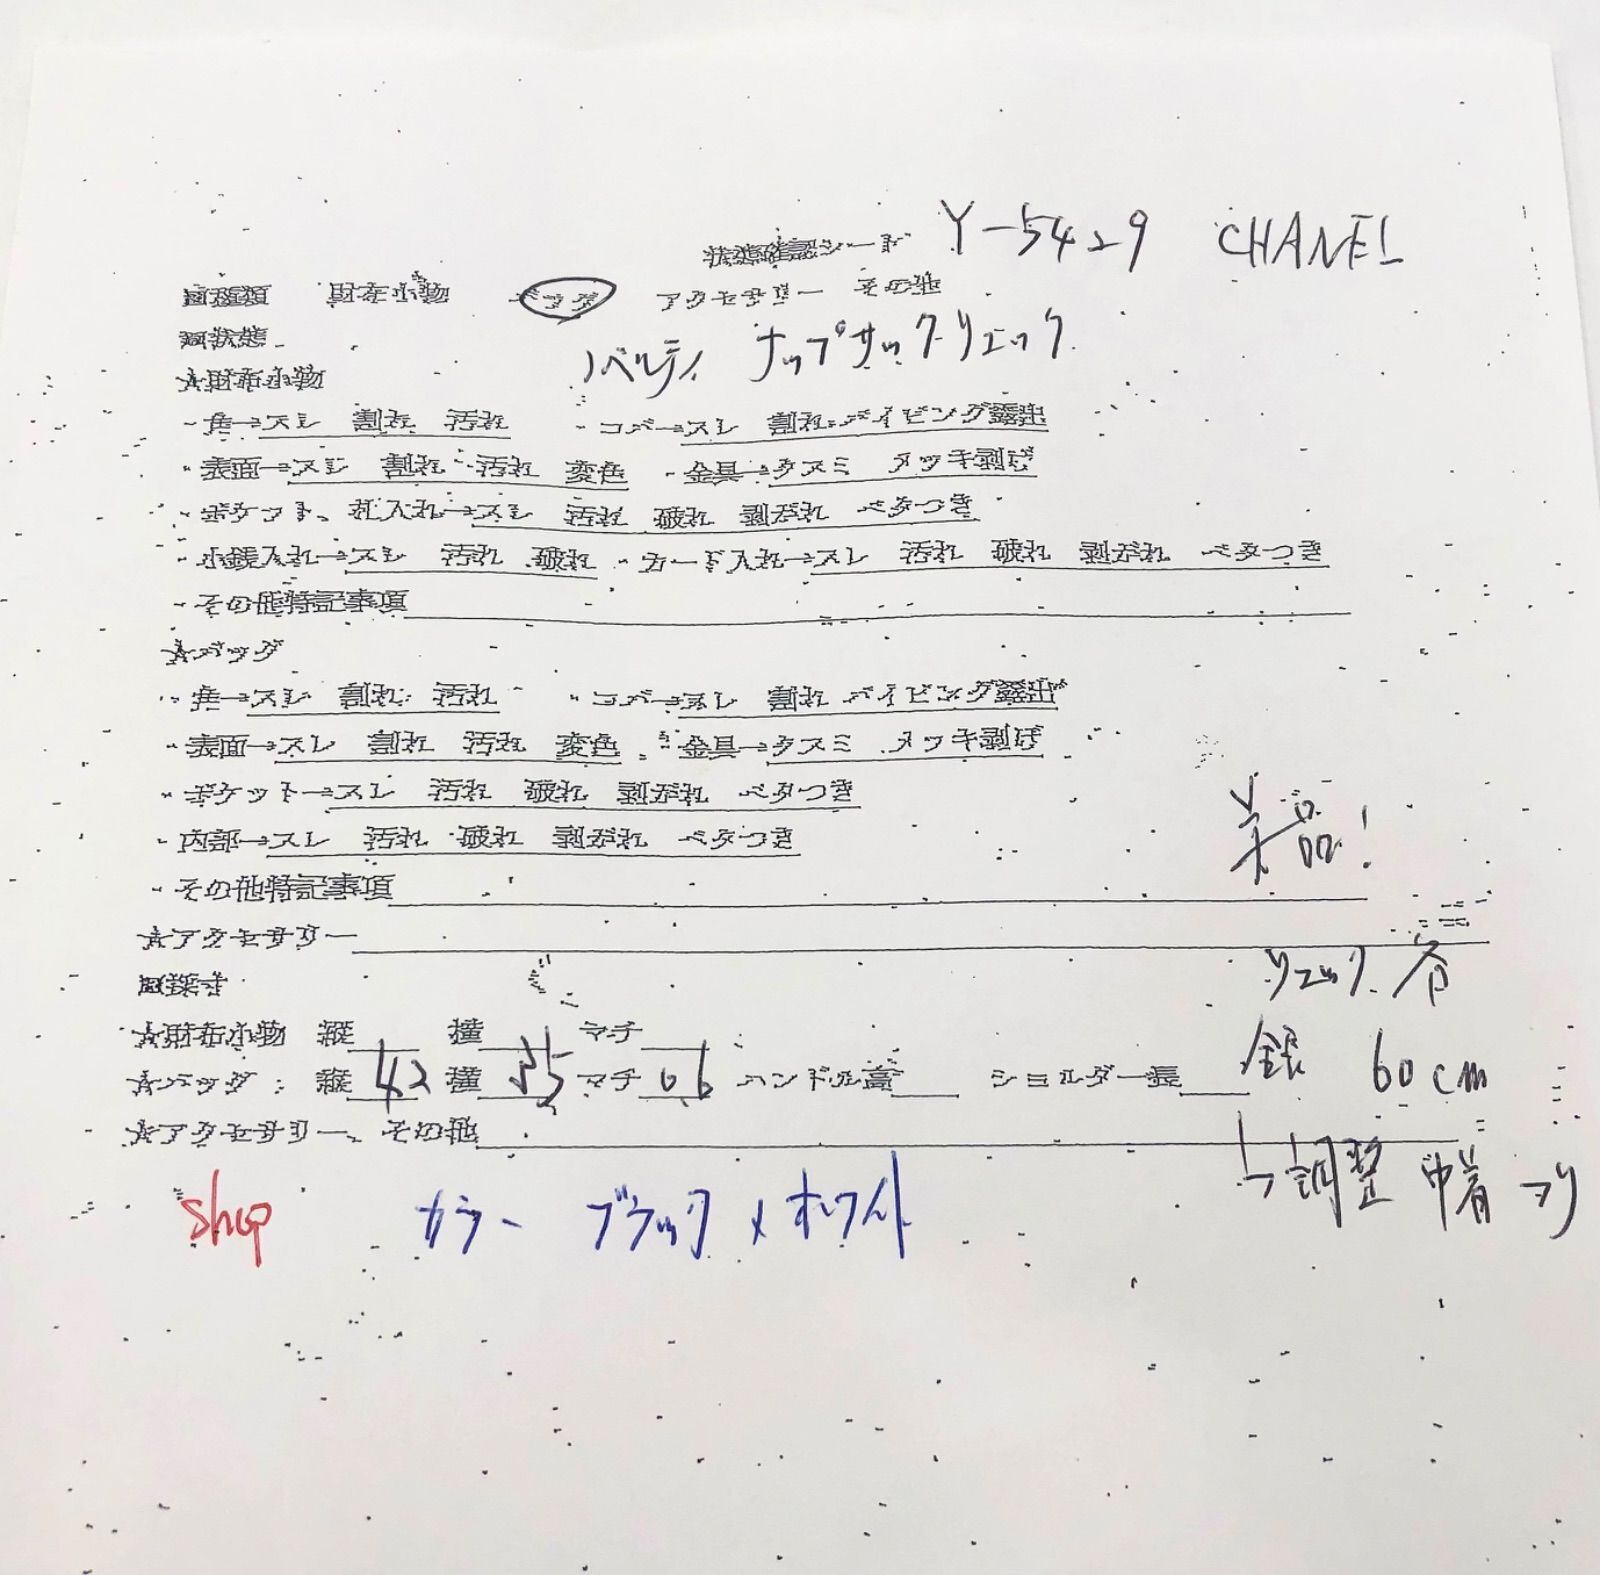 状態確認シート Y-5429 CHANEL
□種類 財布小物 バッグ アクセサリー その他
□状態 ノベルティ ナップサックリュック
☆財布小物
・角→スレ 割れ 汚れ ・コバ→スレ 割れ パイピング露出
・表面→スレ 割れ 汚れ 変色 ・金具→クスミ メッキ剥げ
・ポケット、札入れ→スレ 汚れ 破れ 剥がれ ベタつき
・小銭入れ→スレ 汚れ 破れ ・カード入れ→スレ 汚れ 破れ 剥がれ ベタつき
・その他特記事項
☆バッグ
・角→スレ 割れ 汚れ ・コバ→スレ 割れ パイピング露出
・表面→スレ 割れ 汚れ 変色 ・金具→クスミ メッキ剥げ
・ポケット→スレ 汚れ 破れ 剥がれ ベタつき
・内部→スレ 汚れ 破れ 剥がれ ベタつき
美品!
・その他特記事項
☆アクセサリー
□採寸 リュック
☆財布小物 縦 横 マチ
☆バッグ: 縦 42 横 35 マチ 06 ハンドル高 ショルダー長 60cm
☆アクセサリー、その他
→調整 巾着
shop カラー ブラック×ホワイト